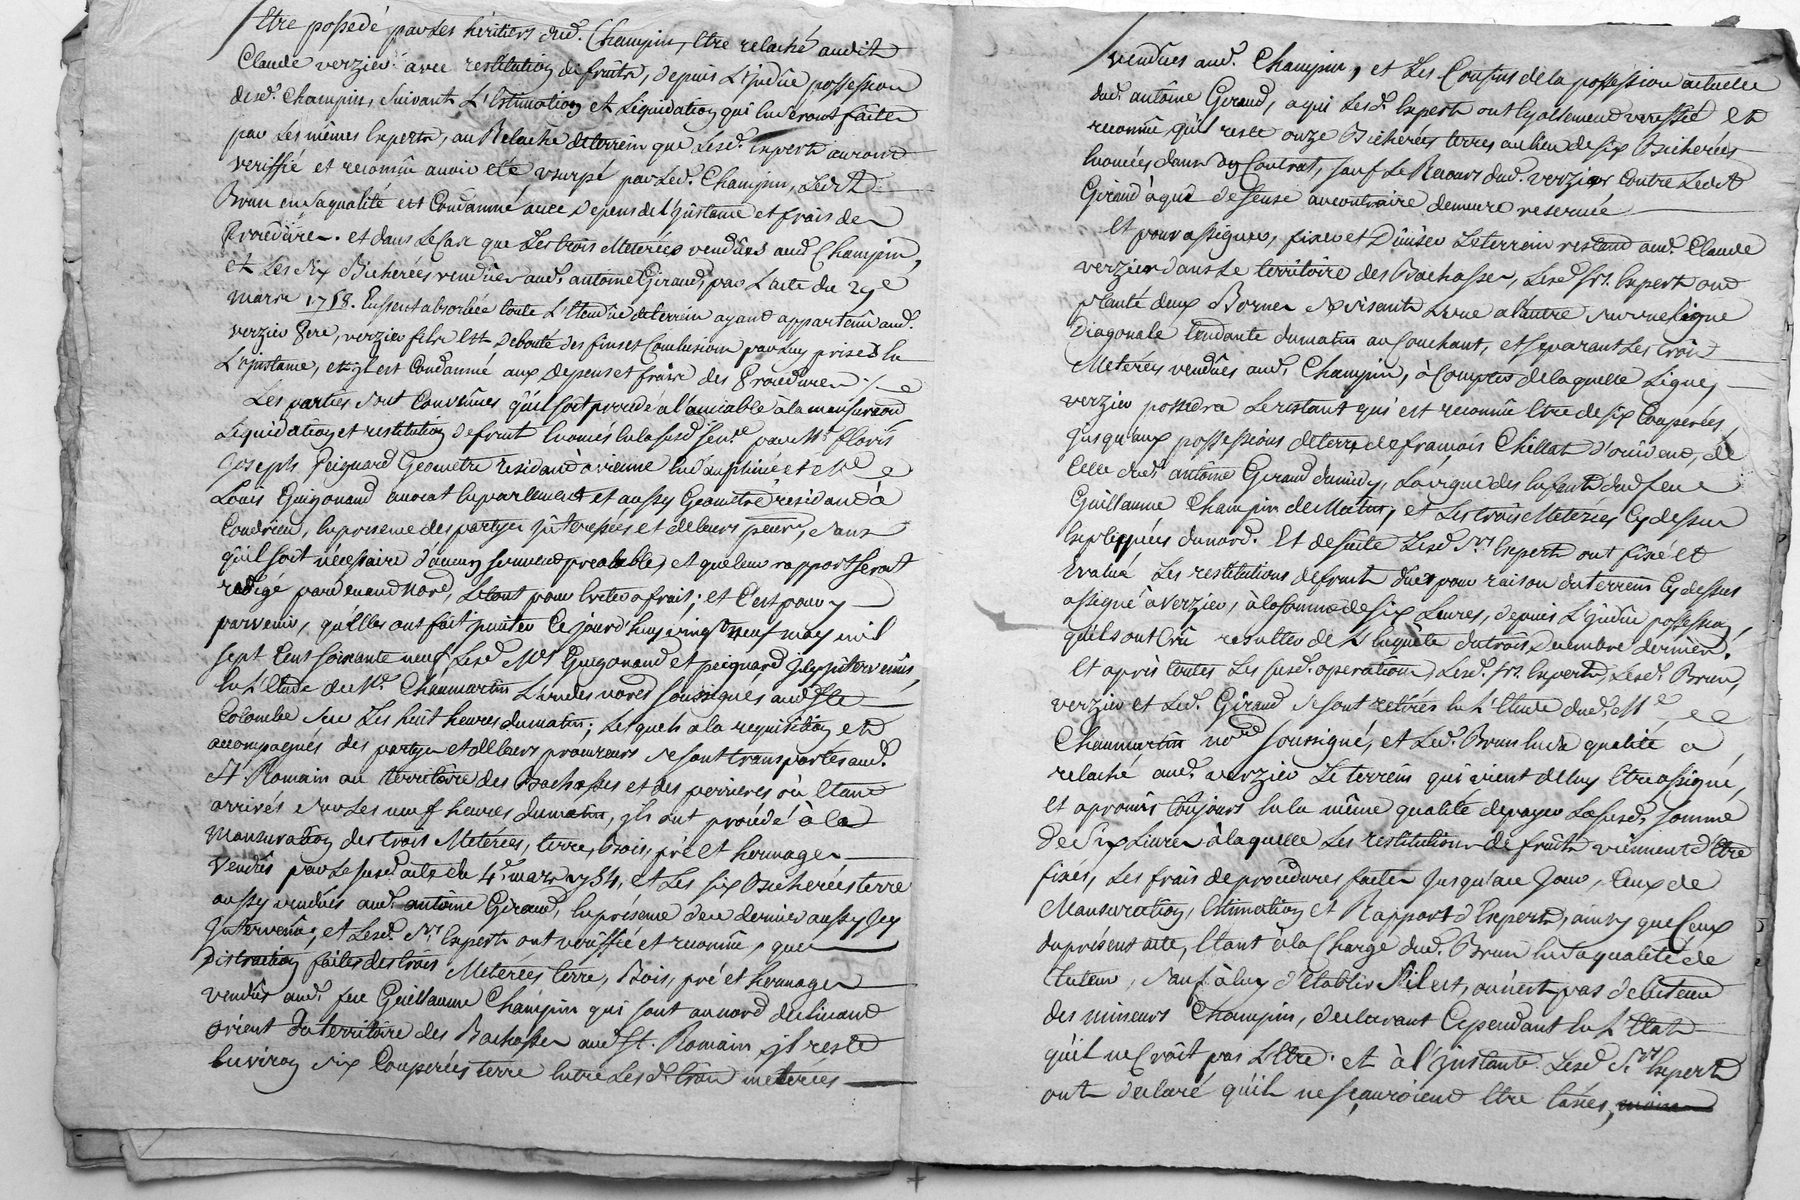 Etre possedé par Les héritiers dud. Champin, Etre relaché audit
Claude verzier avec restitution de fruits, depuis L'indûe possession
dud. Champin, Suivant L'Estimation et Liquidation qui En seront faites
par Les mêmes Experts, au Relache de terrein que Lesd. Experts auront
veriffié et reconnû avoir été usurpé par Led. Champin, Ledit
Brun en Sa qualité est Condamné avec depens de L'jnstance et frais de
Procedure. et dans Le Cas que Les trois Meterées vendûes aud. Champin,
et Les Six Bicherées vendûes aud. antoine Giraud, par L'acte du 29e
mars 1758. Eussent absorbée toute L'Etendûe de terrein ayant appartenû aud.
verzier Pere, verzier fils Est debouté des fins et Conclusions par Luy prises En
L'jnstance, et jl est Condamné aux depens et frais des Procedures
Les parties sont Convenûes qu'il soit procedé a L'amiable à la mensuration
Liquidation et restitution de fruits Enoncés En la susd. Sence. par Mr. floris
Joseph Peignard Geometre residant à vienne En dauphiné et Me
Louis Guigonand avocat En parlement et aussy Geometre residant à
Condrieu, En presence des partyes jnteressées et de Leurs procrs., Sans
qu'il soit nécessaire d'aucun serment prealable, et que Leur rapport Seroit
redigé pardevant Nore, Le tout pour Eviter a frais; et C'est pour y
parvenir, qu'Elles ont fait jnviter Cejourd'huy vingt neuf may mil
Sept Cent Soixante neuf Lesd. Mes Guigonand et peignard jcy jntervenûs,
En L'Etude de Me. Chaumartin L'un des nores Soussignés aud. Ste
Colombe Sur Les huit heures du matin; Lesquels a la requisition et
accompagnés des partyes et de Leurs procureurs se sont transportés aud.
St. Romain au territoire des Bachasses et des perrieres où Etant
arrivés Sur Les neuf heures du matin, jls ont procédé à la
Mansuration des trois Meterées, terre, Bois, pré et hermages
Vendûs par Le susd. acte du 4e. mars 1754, et Les six Bicherées terre
aussy vendûes aud. antoine Giraud, En présence de ce dernier aussy jcy
jntervenû, et Lesd. Srs Experts ont veriffié et reconnû, que
Distraction faites des trois Meterées, terre, Bois, pré et hermages
vendûs aud. feu Guillaume Champin qui sont au nord declinant
orient du territoire des Bachasses aud. St. Romain jl reste
Environ Six Couperées terre Entre Lesd. trois meterées
vendûes aud. Champin, et Les Confins de la possession actuelle
dud. antoine Giraud, a qui Lesd. Experts ont Egallement veriffié et
reconnû qu'il reste onze Bicherées terres au lieu de six Bicherées
Enoncées dans son Contrat, sauf Le Recours dud. verzier Contre Ledit
Giraud à qui deffense au contraire demeure reservée
Et pour assigner, fixer et Diviser Le terrein restant aud. Claude
verzier dans Le territoire des Bachasses, Lesd. Srs. Experts ont
planté deux Bornes se visants L'une a L'autre sur une Ligne
Diagonale tendante du matin au Couchant, et separant Les trois
Meterées vendûes aud. Champin, à Compter de laquelle Ligne,
verzier possedra Le restant qui est reconnû Etre de six Couperées,
jusqu'aux possessions de terre de françois Chillat d'occident, de
Celle dud. antoine Giraud du midy, La vigne des Enfants dud. feu
Guillaume Champin de Matin, et Les trois Meterées Cy dessus
Expliquées du nord. Et de suite Lesd. Srs Experts ont fixé et
Evalué Les restitutions de fruits dues pour raison du terrein Cy dessus
assigné à verzier, à la somme de six Livres, depuis L'jndûe possession,
qu'ils ont Crû resulter de L'Enquête du trois decembre dernier.
Et après toutes Les susd. operations, Lesd. Srs. Experts, Lesd. Brun,
verzier et Led. Giraud se sont retirés En L'Etude dud. Me
Chaumartin nore soussigné, et Led. Brun En sa qualité a
relaché aud. verzier Le terrein qui vient de luy Etre assigné,
et a promis toujours En la même qualité de payer La susd. somme
de Six Livres à laquelle Les restitutions de fruits viennent d'Etre
fixés, Les frais de procedures faites jusqu'à ce Jour, Ceux de
Mansuration, Estimation et Rapport d'Experts, ainsy que Ceux
du présent acte, Etant à la Charge dud. Brun En sa qualité de
tuteur, Sauf à luy d'établir S'il est, ou n'est pas debiteur
des mineurs Champin, declarant Cependant En L'Etat
qu'il ne Croit pas L'Etre. et à L'jnstant Lesd. Srs Experts
ont declaré qu'ils ne sçauroient Etre taxés,